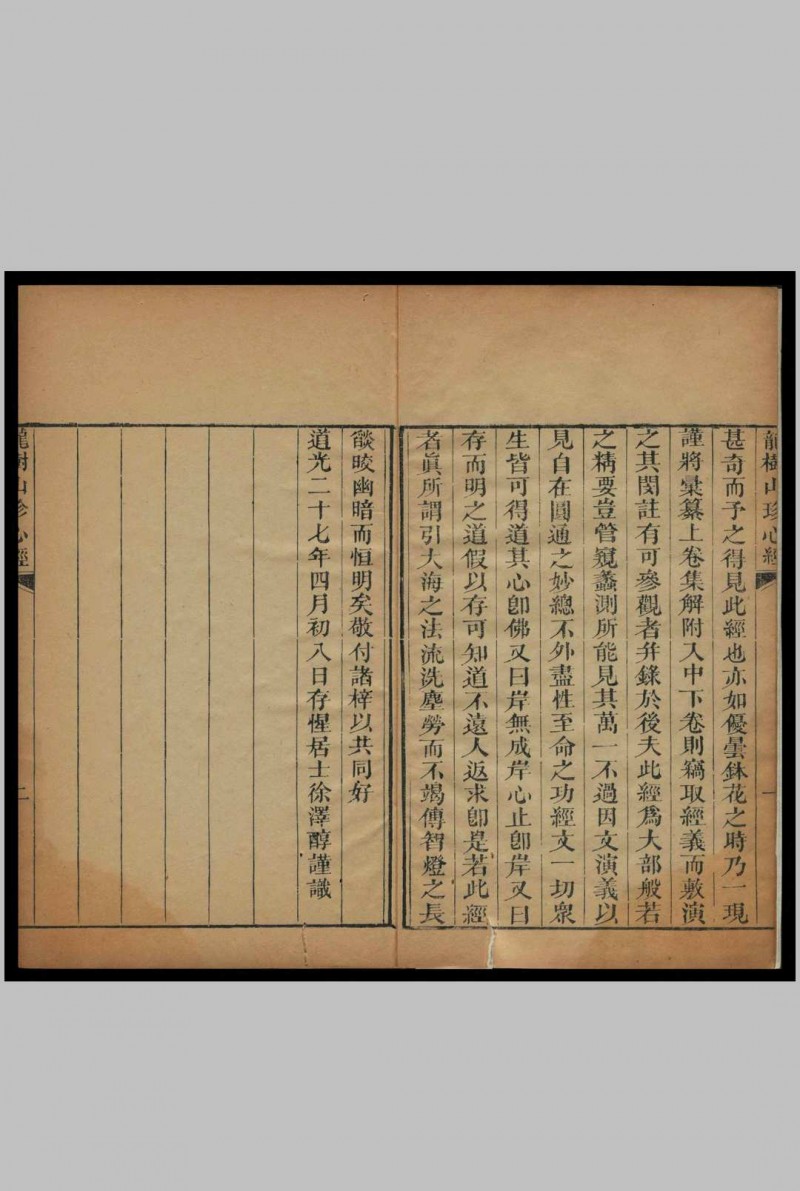 龍樹山珍心經
一
甚奇而予之得見此經也亦如優曇鉢花之時乃一現
謹將彙纂上卷集解附入中下卷則竊取經義而敷演
之其閔註有可參觀者幷錄於後夫此經爲大部般若
之精要豈管窺蠡測所能見其萬一不過因文演義以
見自在圓通之妙總不外盡性至命之功經文一切衆
生皆可得道其心卽佛又曰岸無成岸心止卽岸又曰
存而明之道假以存可知道不遠人返求卽是若此經
者眞所謂引大海之法流洗塵勞而不竭傳智燈之長
燄晈幽暗而恒明矣敬付諸梓以共同好
道光二十七年四月初八日存惺居士徐澤醇謹識
龍樹山珍心經
二